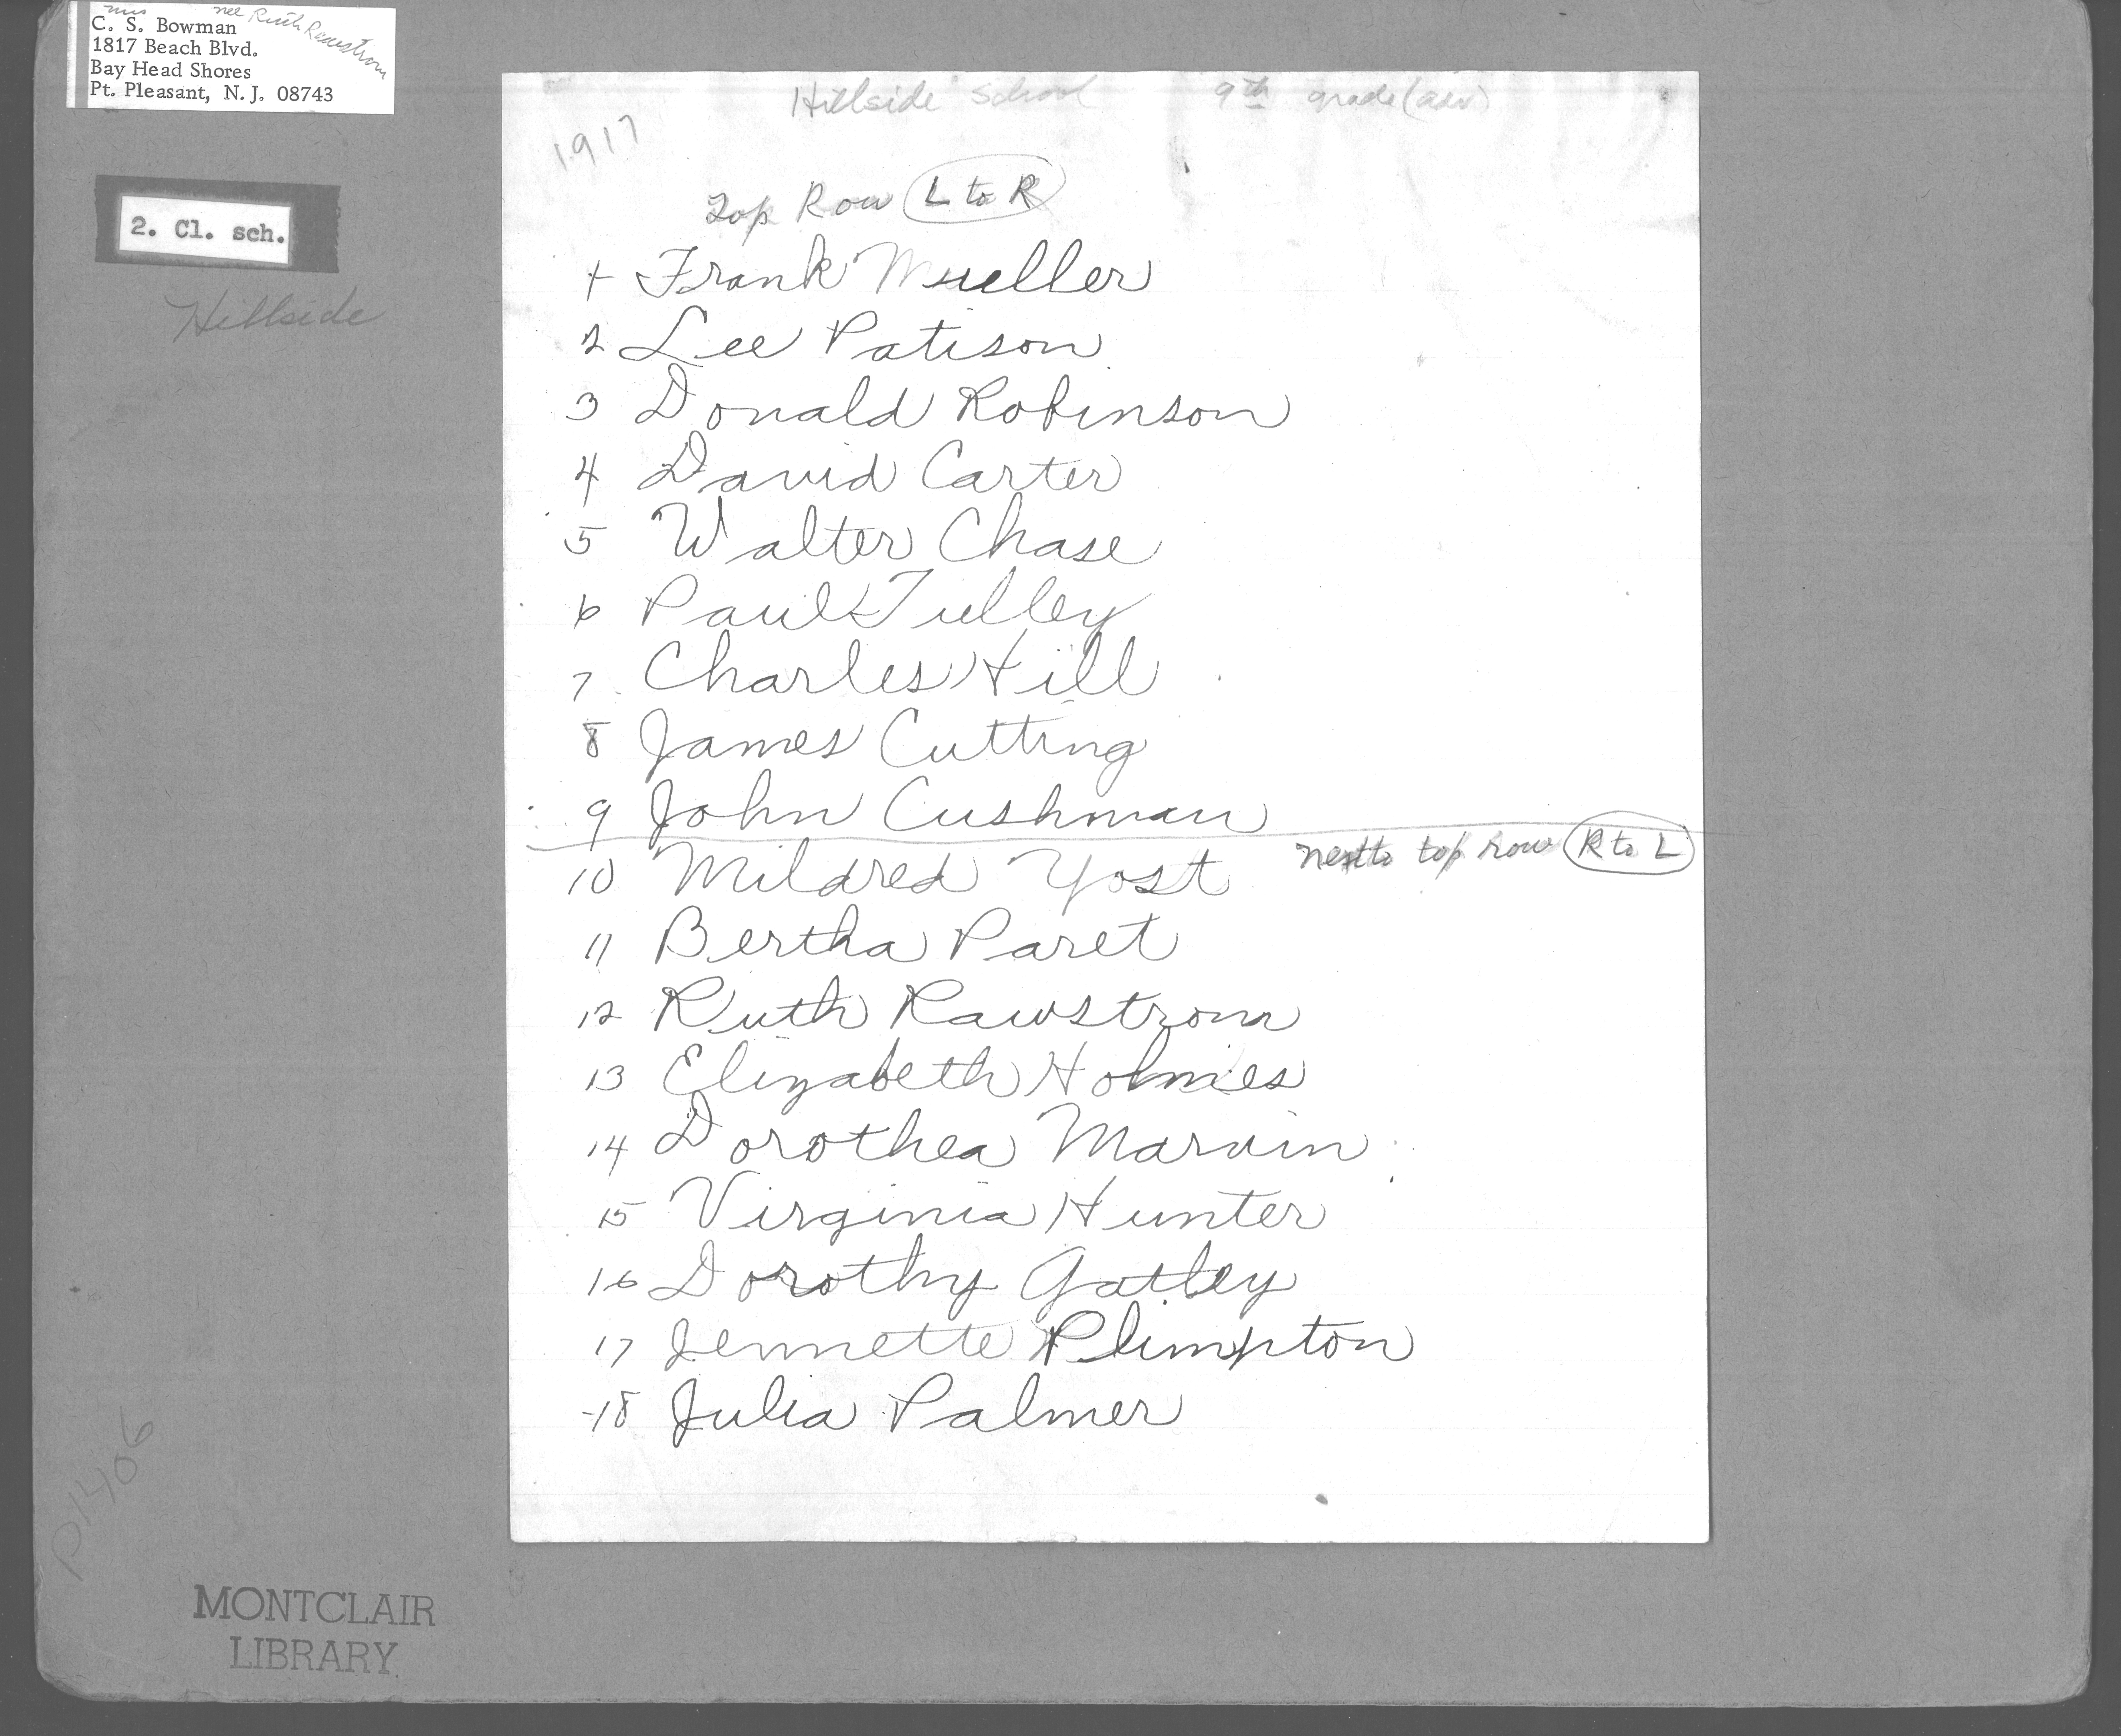 mrs nee Ruth Rawstrom
C. S. Bowman
1817 Beach Blvd.
Bay Head Shores
Pt. Pleasant, N.J. 08743
2. Cl. sch.
Hillside
Hillside School 9th grade (adv)
1917
Top Row L to R
1 Frank Mueller
2 Lee Patison
3 Donald Robinson
4 David Carter
5 Walter Chase
6 Paul Tulley
7 Charles Hill
8 James Cutting
9 John Cushman
next to top row R to L
10 Mildred Yost
11 Bertha Paret
12 Ruth Rawstrom
13 Elizabeth Holmes
14 Dorothea Marvin
15 Virginia Hunter
16 Dorothy Gatley
17 Jennette Plimpton
18 Julia Palmer
P1406
MONTCLAIR
LIBRARY